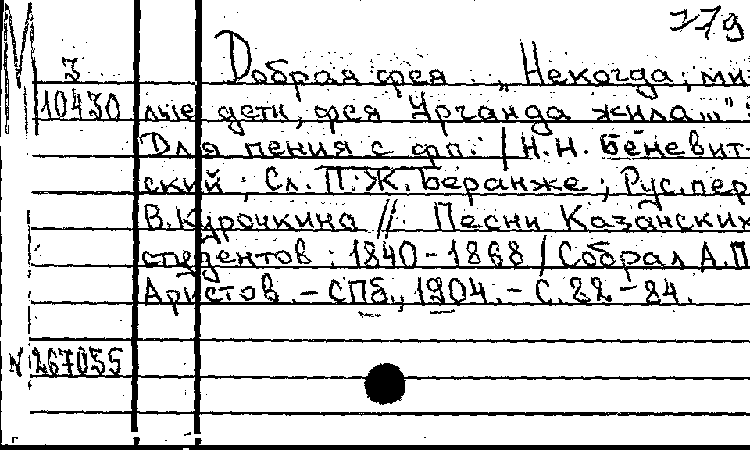 179
М
З
10430
Добрая фея. „Некогда, ми-
лые дети, фея Урганда жила..."
Для пения с фп. / Н.Н. Беневит-
ский; Сл. П.Ж. Беранже; Рус. пер.
В. Курочкина // Песни Казанских
студентов: 1840-1868 / Собрал А.П.
Аристов. – СПб., 1904. – С. 82-84.
N 267055